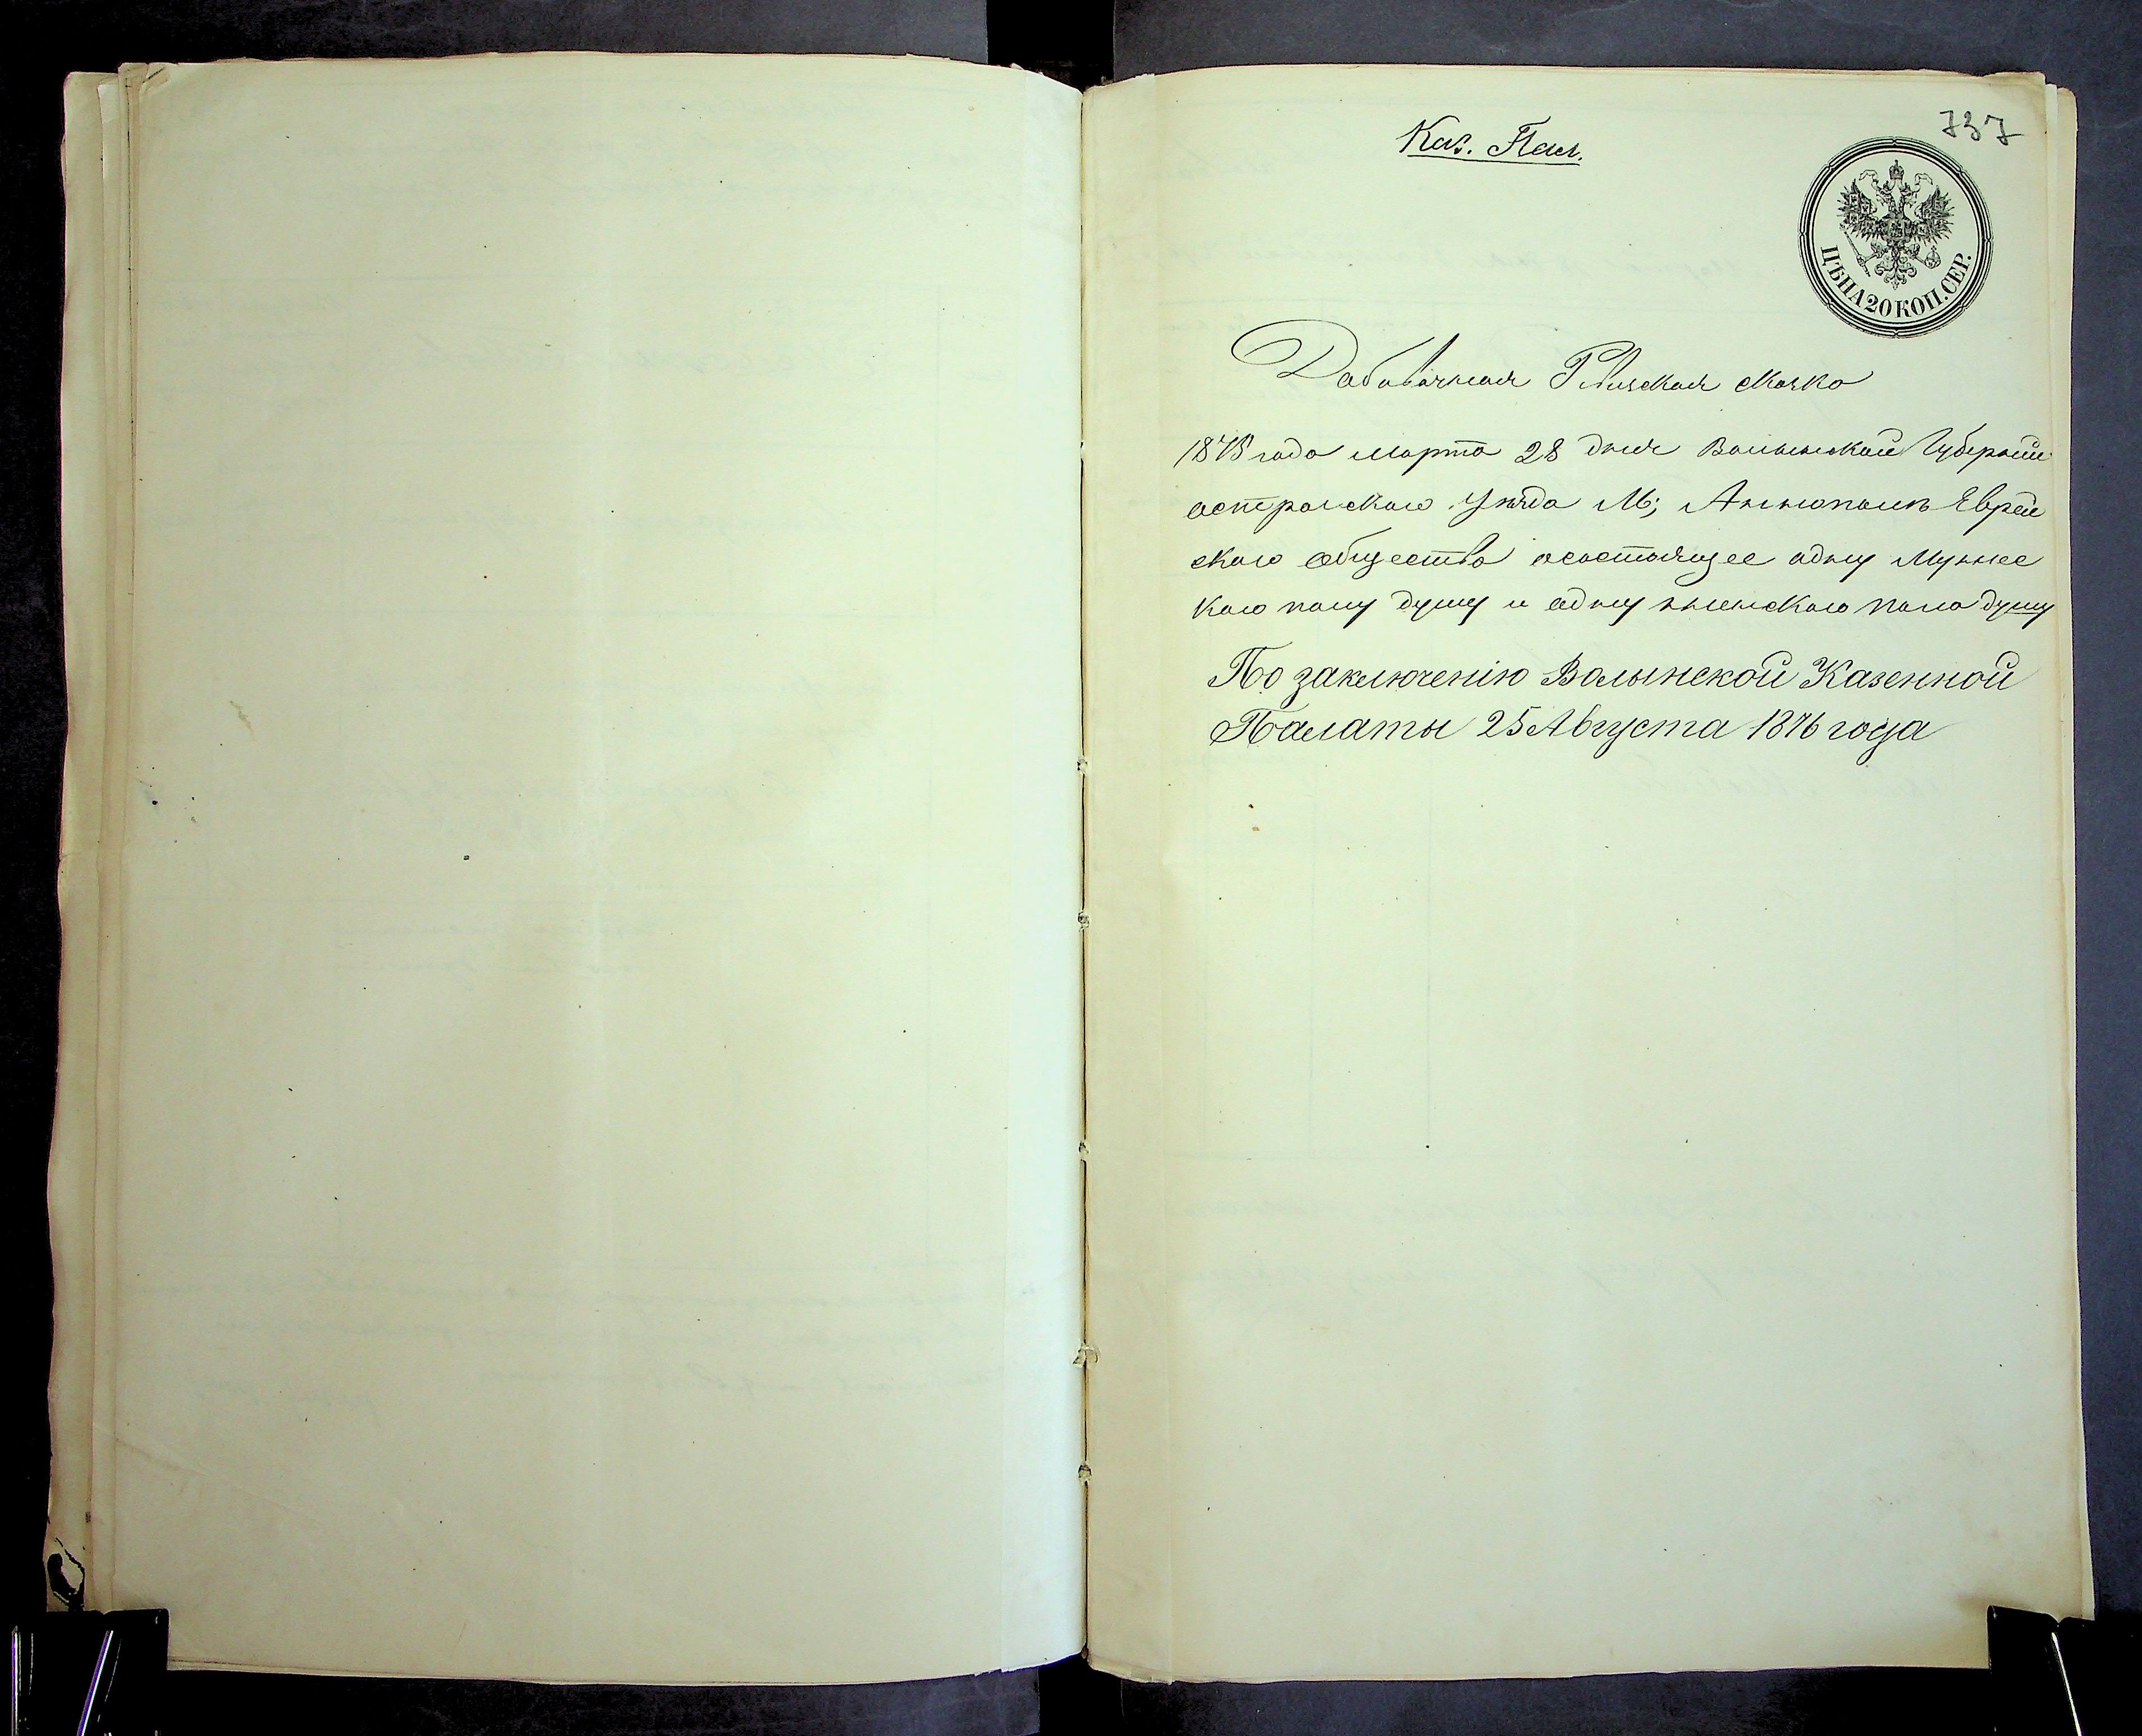 737
Каз. Пал.
ЦѢНА 20 КОП. СЕР.
Дабавачная Ривизская скаско
1875 года марта 28 дня Волынской Губернии
острогскаго уѣзда М; Аннополь Еврей
скаго общества осостоящее одну Мужес
каго полу душу и одну женскаго пола душу
По заключенію Волынской Казенной
Палаты 25 Августа 1876 года